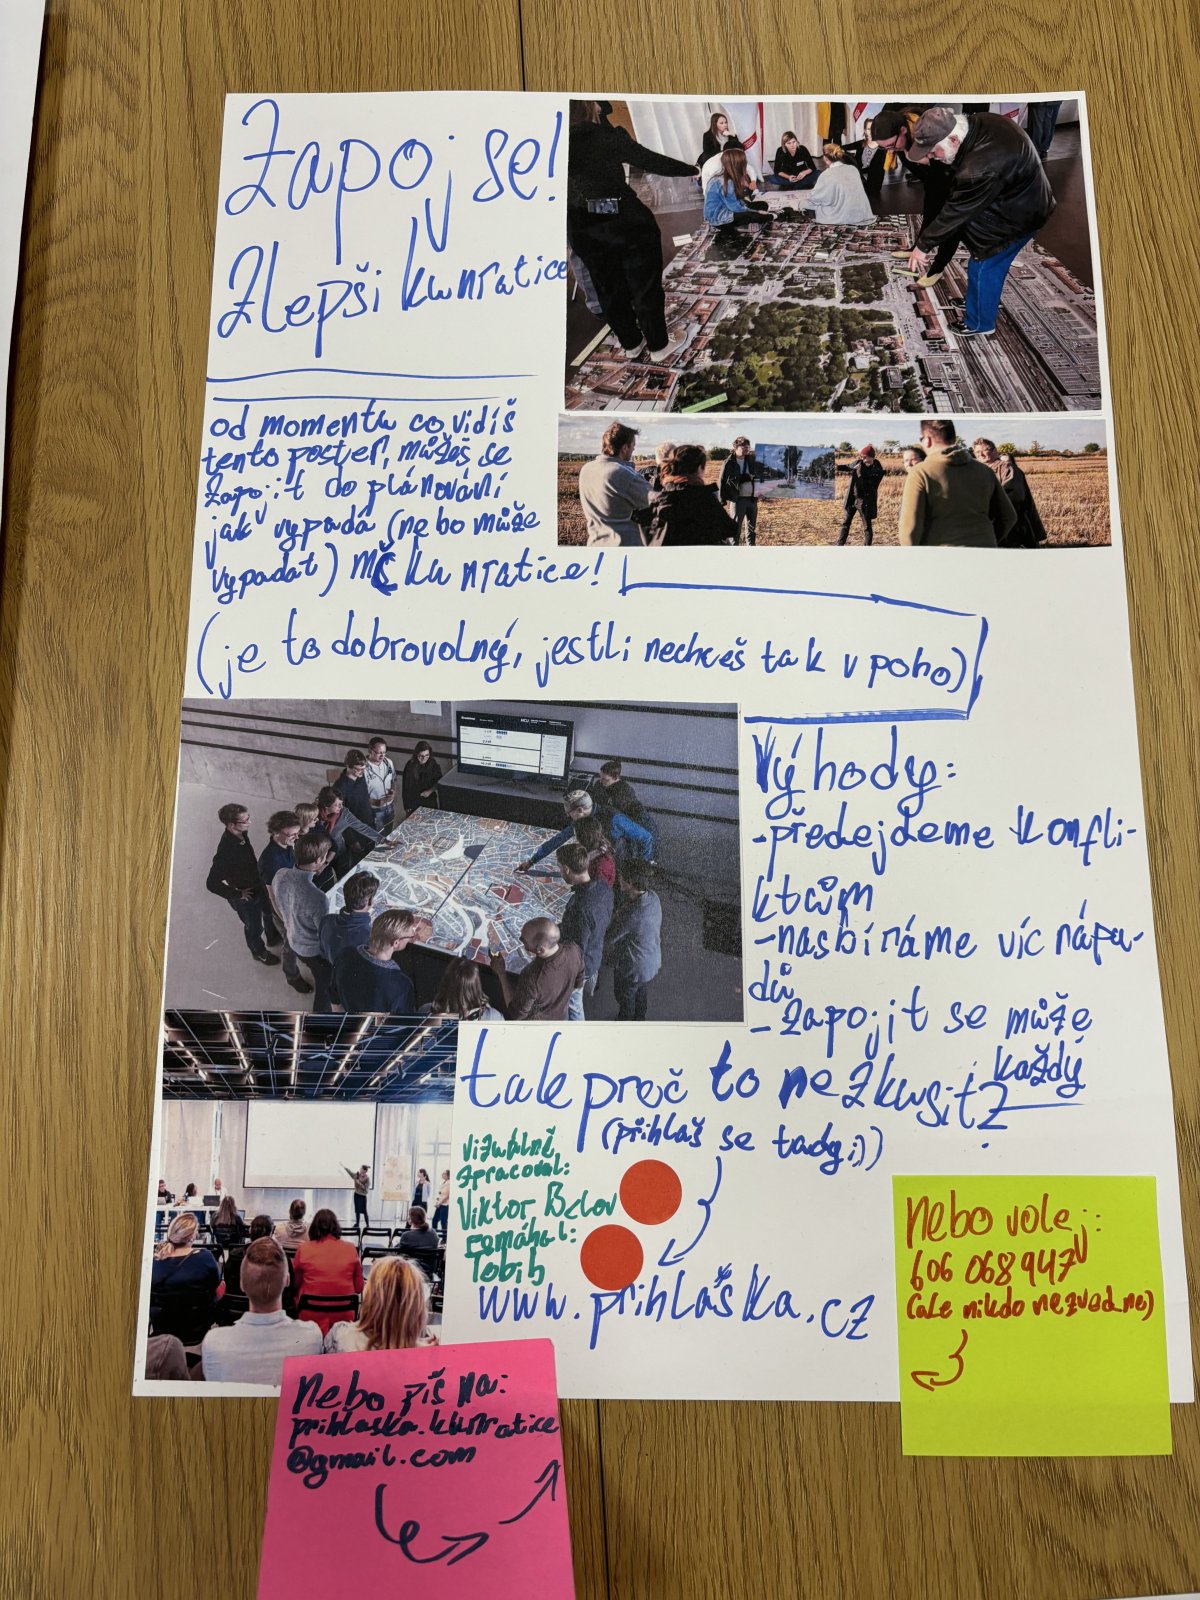 Zapoj se!
Zlepši kunratice
od momentu co vidíš
tento poster, můžeš se
zapojit do plánování
jak vypadá (nebo může
vypadat) MČ kunratice!
(je to dobrovolný, jestli nechceš tak v poho)
Výhody:
-předejdeme konfli-
ktům
-nasbíráme víc nápa-
dů
-zapojit se může
každý
tak proč to nezkusit?
(přihlaš se tady:))
vizuálně
zpracoval:
Viktor
pomáhal:
www.prihlaška.cz
Nebo volej:
606 068 947
(ale nikdo nezvedne)
Nebo piš na:
prihlaska.kunratice
@gmail.com